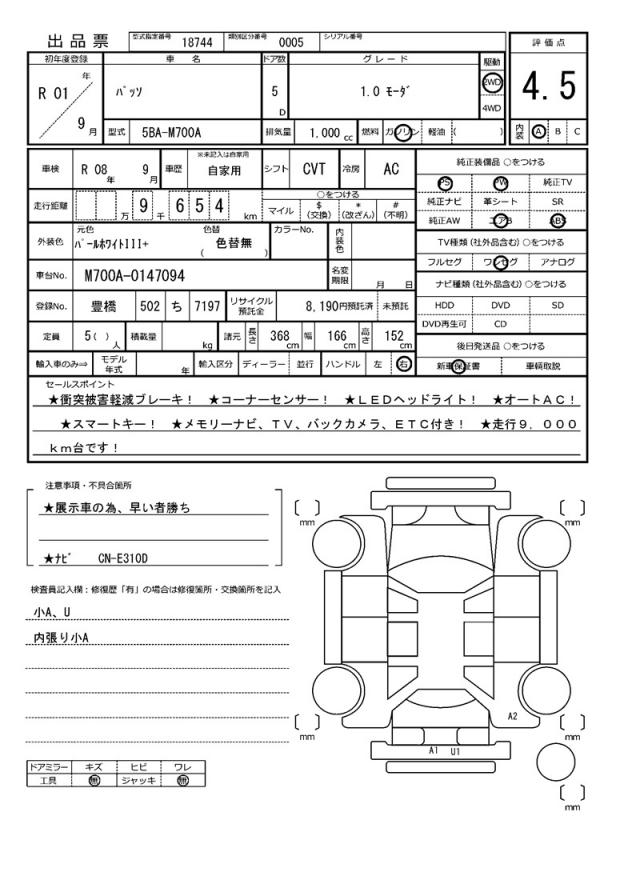 出品票
型式指定番号 18744 類別区分番号 0005 シリアル番号
評価点
4.5
内装 A B C
初年度登録 車名 ドア数 グレード 駆動
R 01 年 9 月
ﾊﾟｯｿ 5 D 1.0 ﾓｰﾀﾞ 2WD 4WD
型式 5BA-M700A 排気量 1.000 cc 燃料 ガソリン 軽油 ( )
車検 R 08 年 9 月 車歴 ※未記入は自家用 自家用 シフト CVT 冷房 AC
走行距離 万 9 千 6 5 4 km ○をつける
マイル $(交換) *(改ざん) #(不明)
外装色 元色 ﾊﾟｰﾙﾎﾜｲﾄIII+ 色替 ( 色替無 ) カラーNo. 内装色
車台No. M700A-0147094 名変期限 月 日
登録No. 豊橋 502 ち 7197 リサイクル預託金 8,190円預託済 未預託
定員 5( ) 人 積載量 kg 諸元 長さ 368 cm 幅 166 cm 高さ 152 cm
輸入車のみ⇒ モデル年式 年 輸入区分 ディーラー 並行 ハンドル 左 右
純正装備品 ○をつける
PS PW 純正TV
純正ナビ 革シート SR
純正AW エアB ABS
TV種類 (社外品含む) ○をつける
フルセグ ワンセグ アナログ
ナビ種類 (社外品含む) ○をつける
HDD DVD SD
DVD再生可 CD
後日発送品 ○をつける
新車保証書 車輌取説
セールスポイント
★衝突被害軽減ブレーキ！ ★コーナーセンサー！ ★ＬＥＤヘッドライト！ ★オートＡＣ！
★スマートキー！ ★メモリーナビ、ＴＶ、バックカメラ、ＥＴＣ付き！ ★走行９．０００
ｋｍ台です！
注意事項・不具合箇所
★展示車の為、早い者勝ち
★ﾅﾋﾞ CN-E310D
検査員記入欄：修復歴「有」の場合は修復箇所・交換箇所を記入
小A、U
内張り小A
ドアミラー キズ ヒビ ワレ
工具 無 ジャッキ 無
mm
mm
mm
mm
mm
A2
A1 U1